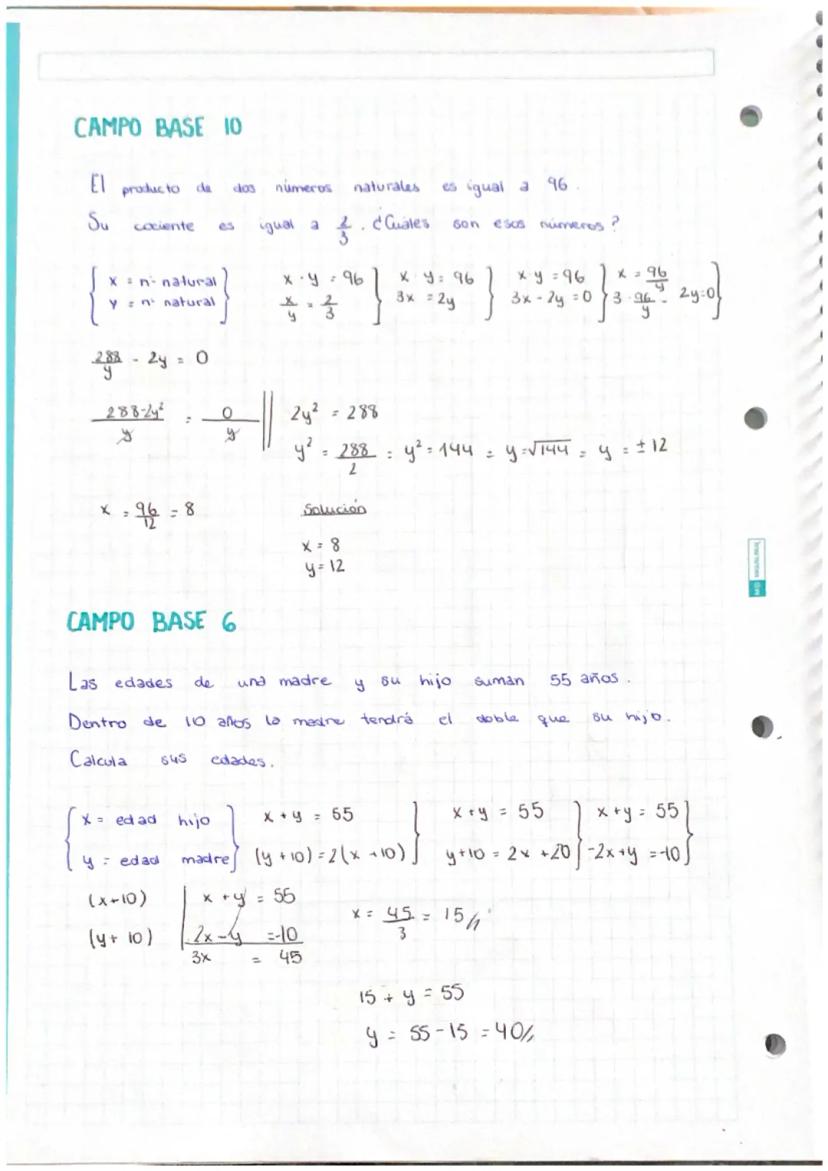 CAMPO BASE 10
El producto de dos números naturales es igual a 96.
Su cociente es igual a 2/3. ¿Cuáles son esos números?
{ x = nº natural } x · y = 96 } x · y = 96 } x · y = 96 } x = 96/y }
{ y = nº natural } x/y = 2/3 } 3x = 2y } 3x - 2y = 0 } 3 · 96/y - 2y = 0 }
288/y - 2y = 0
288-2y²/y = 0/y || 2y² = 288
y² = 288/2 = y² = 144 = y = √144 = y = ± 12
x = 96/12 = 8 Solución
x = 8
y = 12
CAMPO BASE 6
Las edades de una madre y su hijo suman 55 años.
Dentro de 10 años la madre tendrá el doble que su hijo.
Calcula sus edades.
{ x = edad hijo } x + y = 55 } x + y = 55 } x + y = 55 }
{ y = edad madre } (y + 10) = 2(x + 10) } y + 10 = 2x + 20 } -2x + y = -10 }
(x+10) | x + y = 55
x = 45/3 = 15//
(y + 10) | 2x - y = -10
3x = 45
15 + y = 55
y = 55 - 15 = 40//